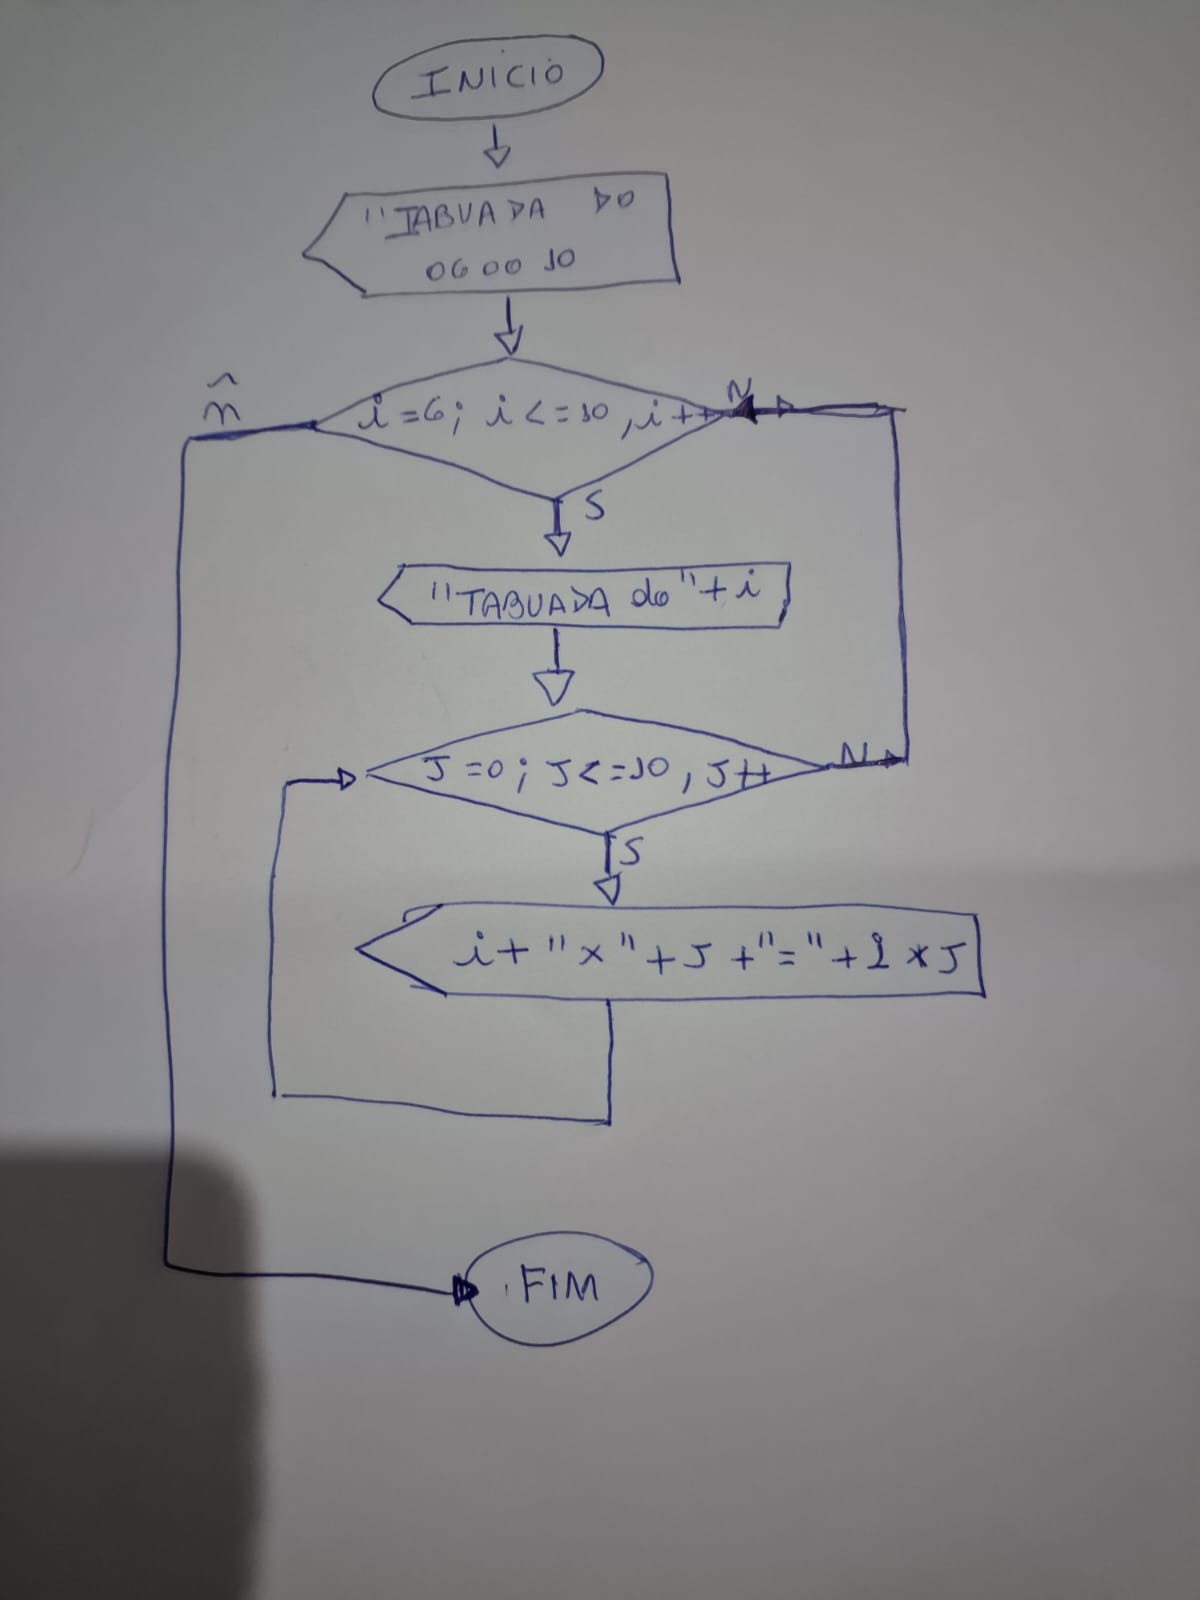 INICIO
"TABUADA DO
06 00 10
n̂
i=6; i<=10, i++
N
S
"TABUADA do"+i
J=0; J<=10, J++
N
S
i+"x"+J+"="+i*J
FIM